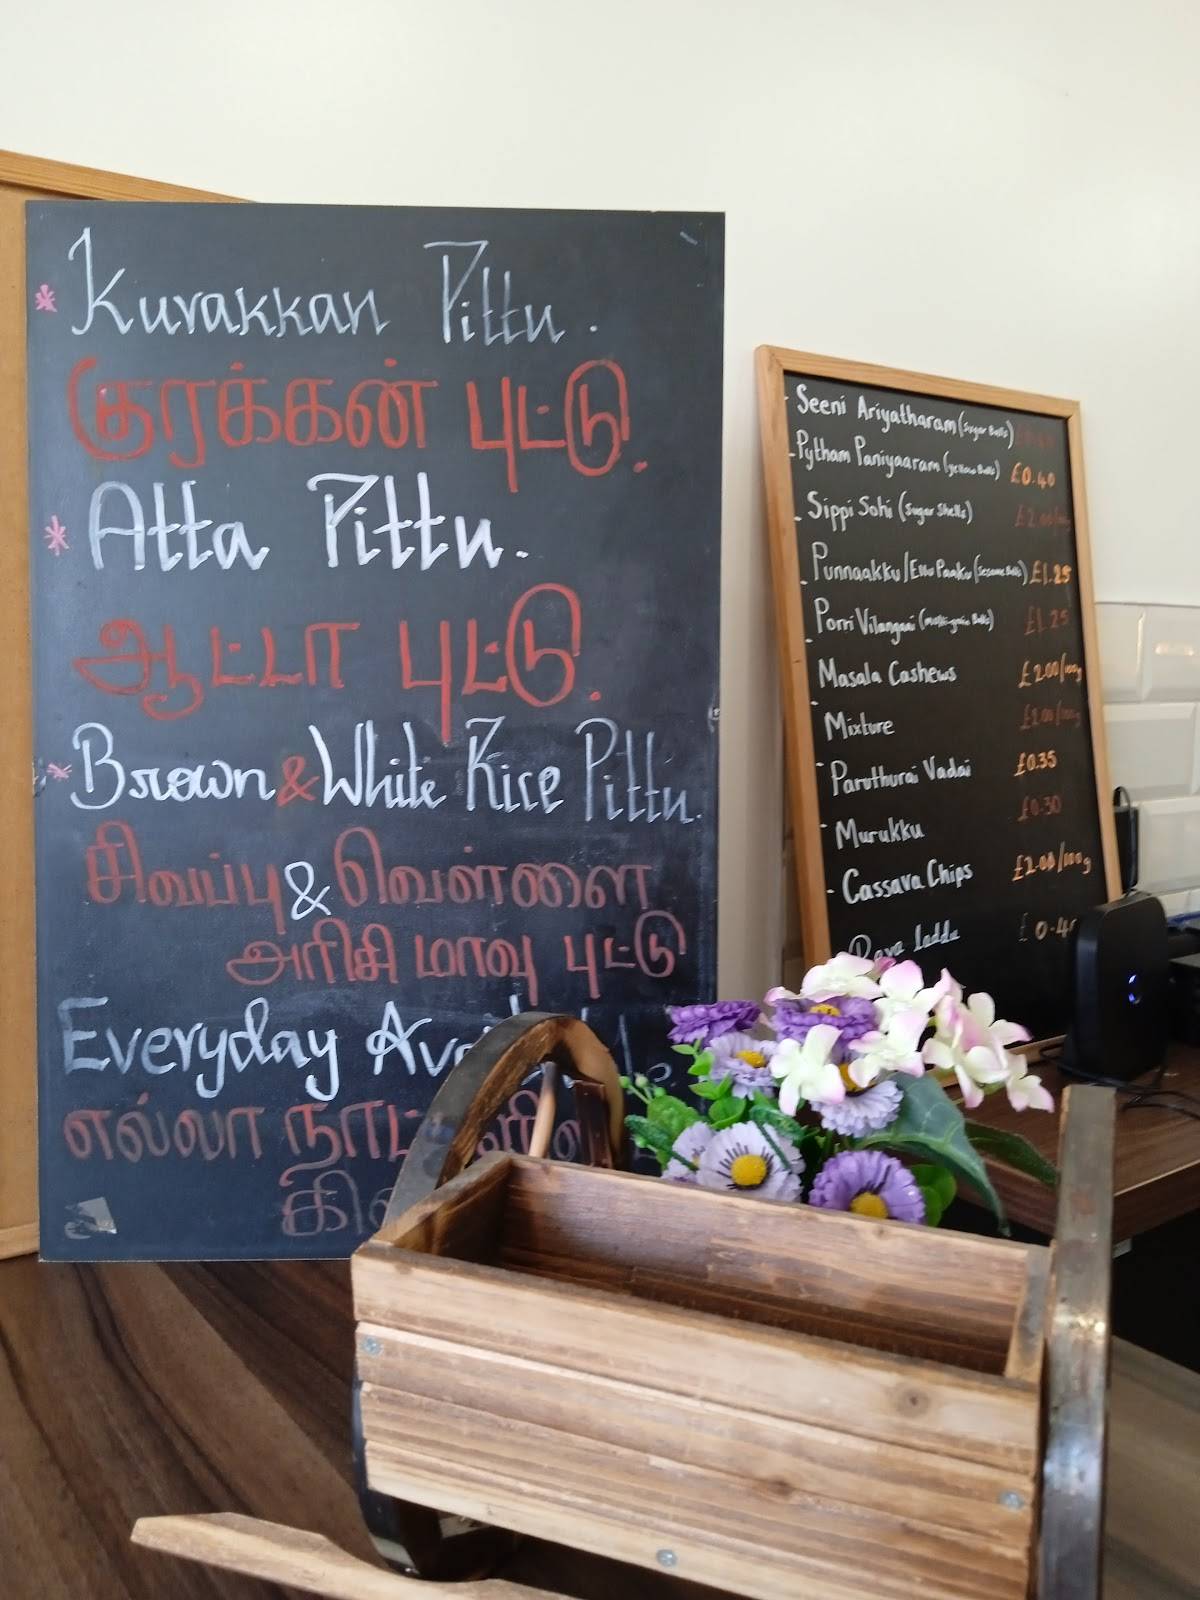 * Kurakkan Pittu.
குரக்கன் புட்டு.
* Atta Pittu.
ஆட்டா புட்டு.
* Brown & White Rice Pittu.
சிவப்பு & வெள்ளை
அரிசி மாவு புட்டு
Everyday
எல்லா
- Seeni Ariyatharam (Sugar Balls)
- Pytham Paniyaaram (yellow Balls) £0.40
- Sippi Sohi (Sugar Shells) £2.00/100g
- Punnaakku/Ellu Paaku (Sesame Balls) £1.25
- Porri Vilangaai (multi-grain Balls) £1.25
- Masala Cashews £2.00/100g
- Mixture £2.00/100g
- Paruthurai Vadai £0.35
- Murukku £0.30
- Cassava Chips £2.00/100g
Laddu £0.40